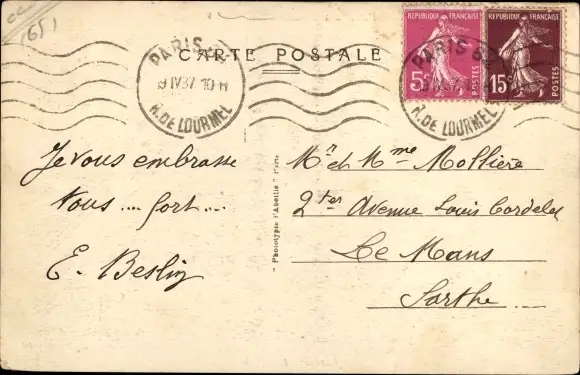 (65)
CARTE POSTALE
PARIS
9 IV 37 10 H
R. DE LOURMEL
REPUBLIQUE FRANÇAISE
5c
POSTES
REPUBLIQUE FRANÇAISE
15c
POSTES
PARIS
R. DE LOURMEL
Je vous embrasse
tous ... fort ...
E. Beslin
" Phototypie l'Abeille " Paris
Mr et Mme Mollière
2 ter Avenue Louis Cordelet
Le Mans
Sarthe